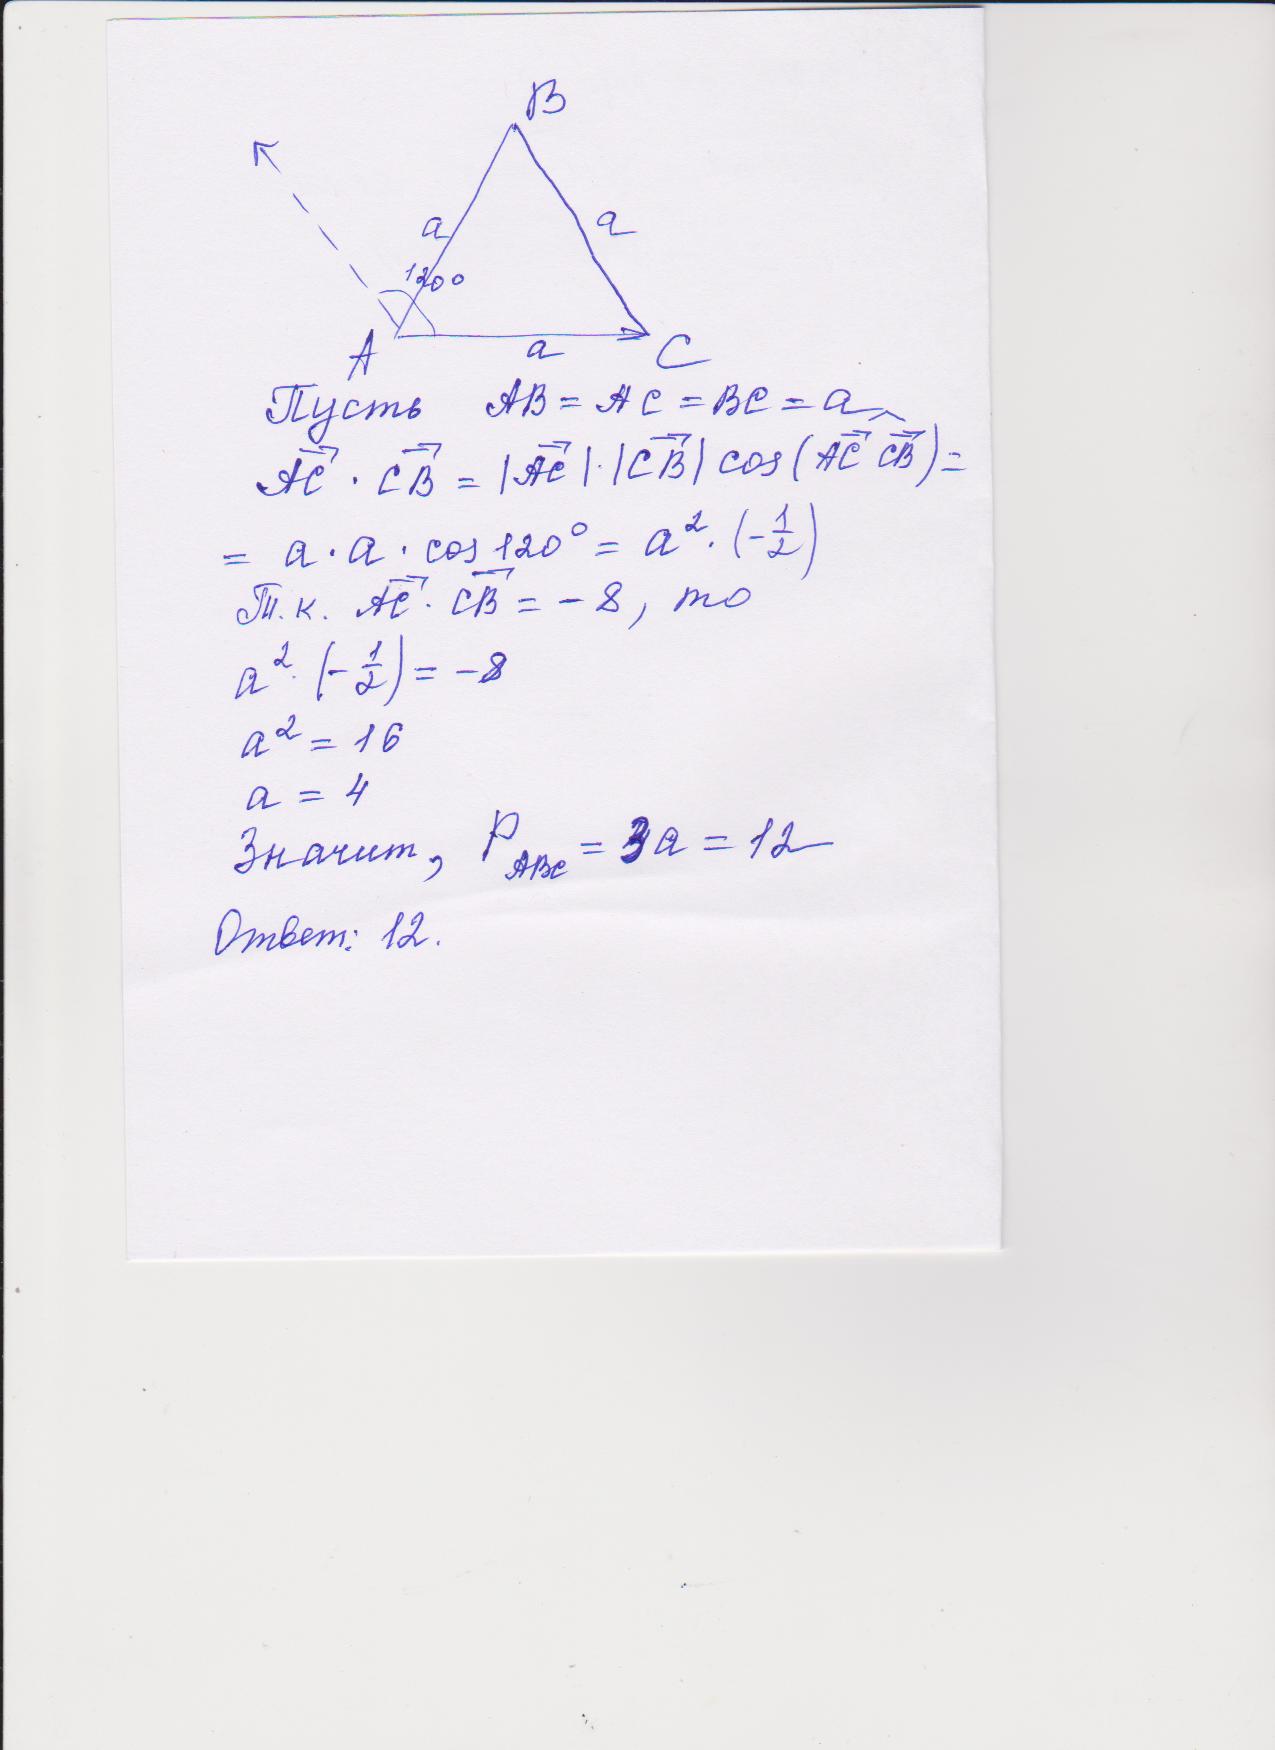 B
a
a
120°
A
a
C
Пусть AB = AC = BC = a
AC⃗ · CB⃗ = |AC⃗| · |CB⃗| cos(AC⃗ CB⃗) =
= a · a · cos 120° = a² · (-1/2)
Т.к. AC⃗ · CB⃗ = -8, то
a² · (-1/2) = -8
a² = 16
a = 4
Значит, P_ABC = 3a = 12
Ответ: 12.